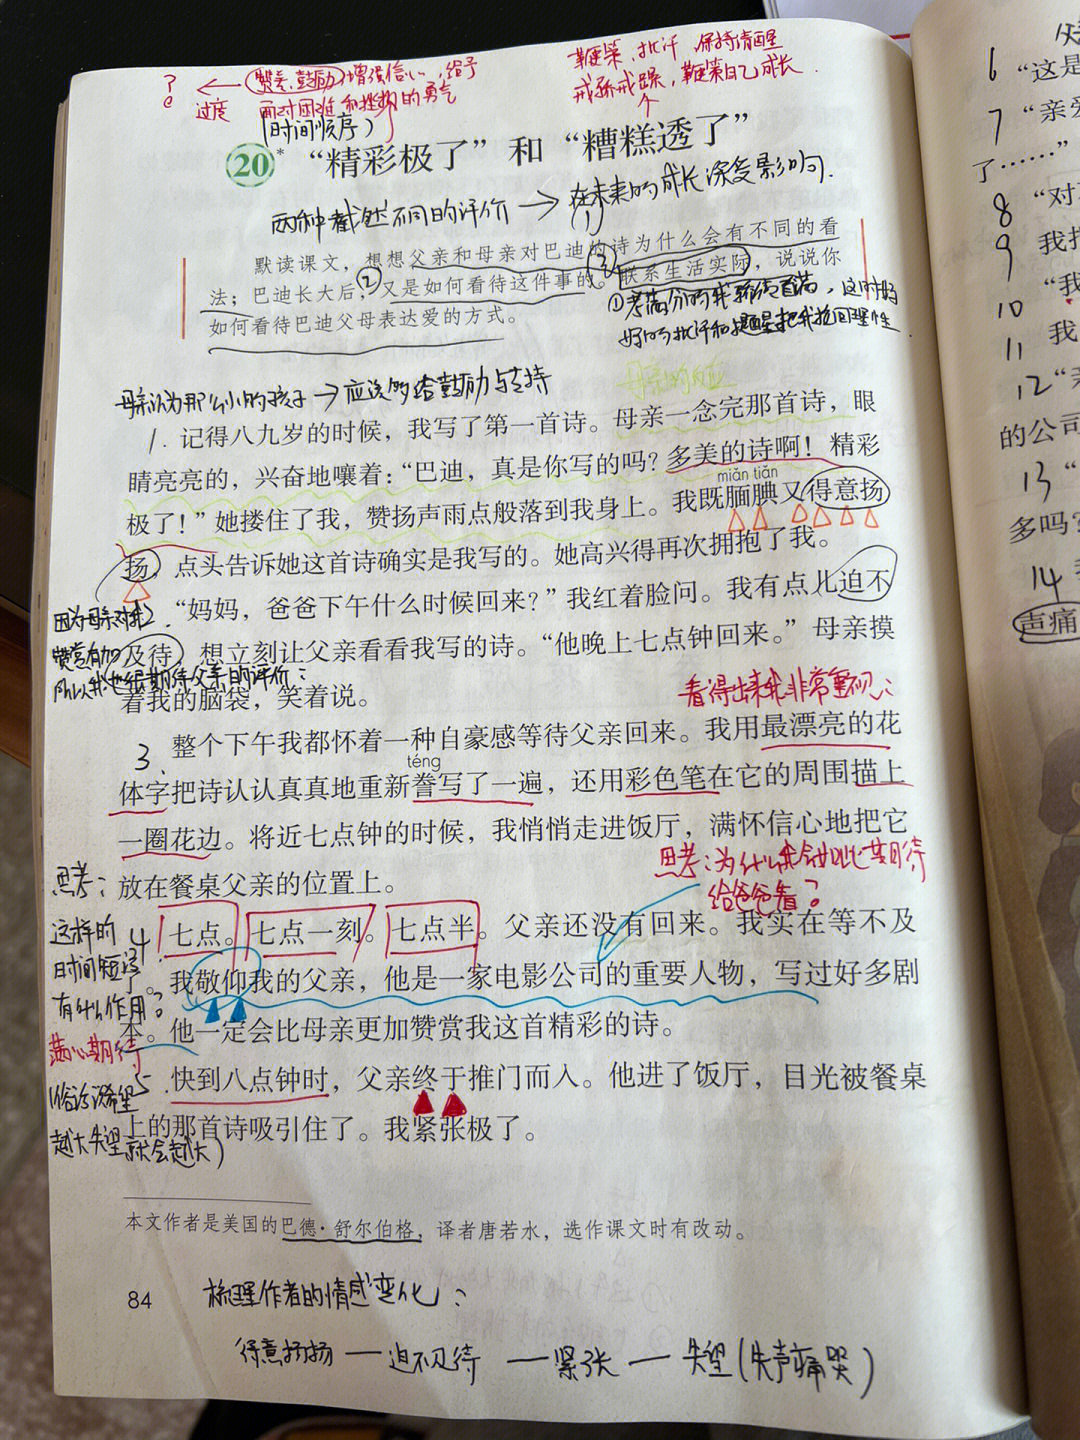 赞美、鼓励 增强信心，给予
过度 面对困难和挫折的勇气
鞭策、批评 保持清醒
戒骄戒躁，鞭策自己成长.
(时间顺序)
20* “精彩极了”和“糟糕透了”
两种截然不同的评价→在未来的成长深受影响.
默读课文，想想父亲和母亲对巴迪的诗为什么会有不同的看
法；巴迪长大后，②又是如何看待这件事的。③联系生活实际，说说你
如何看待巴迪父母表达爱的方式。
①考满分的我骄傲自满，这时妈
妈的批评和提醒把我拉回理性
母亲认为那么小的孩子→应该多给鼓励与支持
母亲的反应
1. 记得八九岁的时候，我写了第一首诗。母亲一念完那首诗，眼
睛亮亮的，兴奋地嚷着：“巴迪，真是你写的吗？多美的诗啊！精彩
miǎn tiǎn
极了！”她搂住了我，赞扬声雨点般落到我身上。我既腼腆又得意扬
扬，点头告诉她这首诗确实是我写的。她高兴得再次拥抱了我。
2. “妈妈，爸爸下午什么时候回来？”我红着脸问。我有点儿迫不
及待，想立刻让父亲看看我写的诗。“他晚上七点钟回来。”母亲摸
着我的脑袋，笑着说。
因为母亲对我
赞赏有加
所以我也很期待父亲的评价：
看得出来我非常重视：
3. 整个下午我都怀着一种自豪感等待父亲回来。我用最漂亮的花
téng
体字把诗认认真真地重新誊写了一遍，还用彩色笔在它的周围描上
一圈花边。将近七点钟的时候，我悄悄走进饭厅，满怀信心地把它
放在餐桌父亲的位置上。
思考：为什么我会如此期待
给爸爸看？
思考：
这样的
时间短语
有什么作用？
满心期待
俗话说希望
越大失望就会越大)
4 七点。七点一刻。七点半。父亲还没有回来。我实在等不及
了。我敬仰我的父亲，他是一家电影公司的重要人物，写过好多剧
本。他一定会比母亲更加赞赏我这首精彩的诗。
5. 快到八点钟时，父亲终于推门而入。他进了饭厅，目光被餐桌
上的那首诗吸引住了。我紧张极了。
本文作者是美国的巴德·舒尔伯格，译者唐若水，选作课文时有改动。
84
梳理作者的情感变化：
得意扬扬—迫不及待—紧张—失望(失声痛哭)
6 “这是
7 “亲爱
了……”
8 “对
9 我
10 “我
11 我
12 “亲
的公司
13 “
多吗？
14 我
声痛